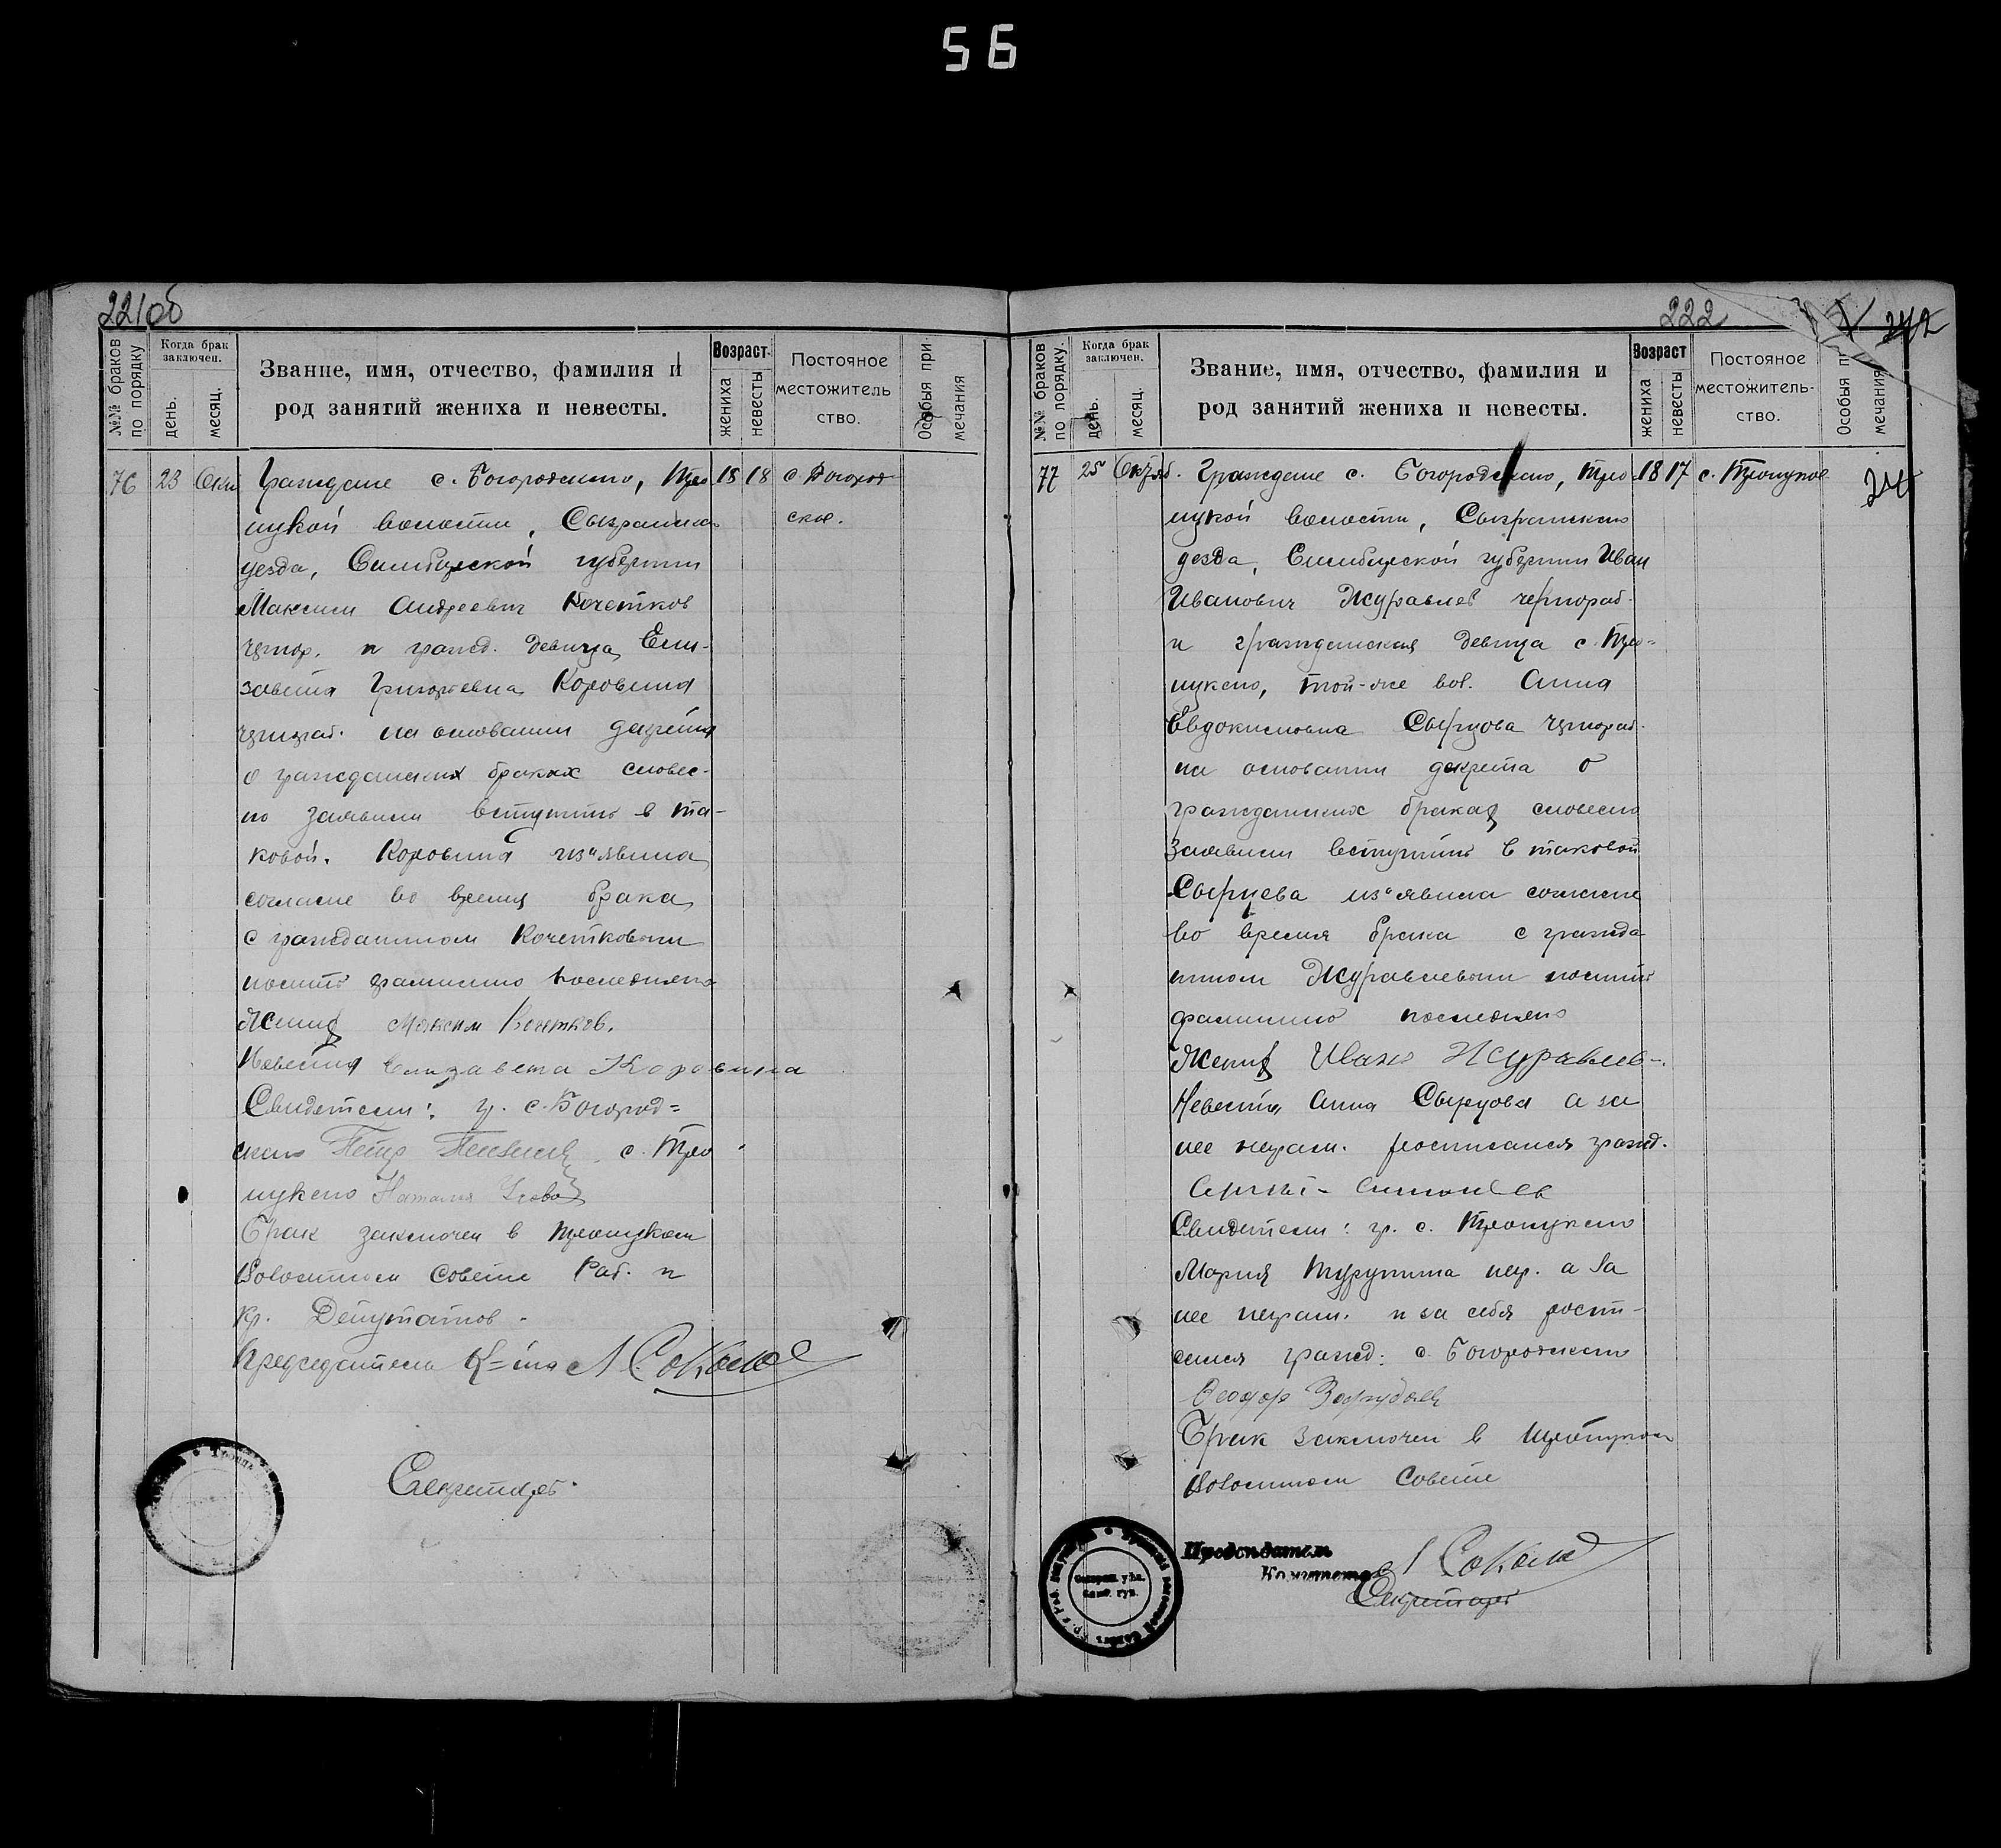 56
221об
№№ браков по порядку
Когда брак заключен.
день.
месяц.
Звание, имя, отчество, фамилия и
род занятий жениха и невесты.
Возраст.
жениха
невесты
Постояное
местожитель
ство.
Особыя при-
мечания
76 23 Окт Граждане с. Богородского, Тро 18 18 с Богород
ицкой волости, Сызранска ское.
уезда, Симбирской губернии
Максим Андреевич Кочетков
и гражд. девица Ели-
завета Григорьевна Коровина
на основании декрета
о гражданских браках словес-
но заявили вступить в та-
ковой. Коровина из"явила
согласие во время брака
с гражданином Кочетковым
носить фамилию последняго
Жених Максим Кочетков.
Невеста Елизавета Коровина
Свидетели: гр. с. Богород=
ского Петр с. Тро
ицкого Наталия
Брак заключен в Троицком
Волостном Совете Раб. и
кр. Депутатов.
Председатель К=та
Секретарь
222
242
№№ браков по порядку.
Когда брак заключен.
день.
месяц.
Звание, имя, отчество, фамилия и
род занятий жениха и невесты.
Возраст
жениха
невесты
Постояное
местожитель-
ство.
Особыя
мечания
77 25 Октяб. Граждане с. Богородского, Тро 18 17 с. Троицкое
ицкой волости, Сызранскаго
уезда, Симбирской губернии Иван
Иванович Журавлев чернораб.
и гражданская девица с. Тро=
ицкого, той-же вол. Анна
Евдокимовна Сырцова чернораб.
на основании декрета о
гражданских браках словесно
заявили вступить в таковой
Сырцева из"явила согласие
во время брака с гражда
нином Журавлевым носить
фамилию последняго
Жених Иван Журавлев.
Невеста Анна Сырцова а за
нее неграм. росписался гражд.
Сергей
Свидетели: гр. с. Троицкого
Мария Турутина нег. а за
нее неграм. и за себя роспи-
сался гражд: с. Богородского
Федор
Брак заключен в Троицком
Волостном Совете
Председатель
Комитета
Секретарь